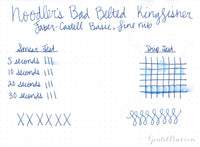 Noodler's Bad Belted Kingfisher
Faber-Castell Basic, fine nib
Smear Test
5 seconds
10 seconds
20 seconds
30 seconds
Drip Test
XXXXXX